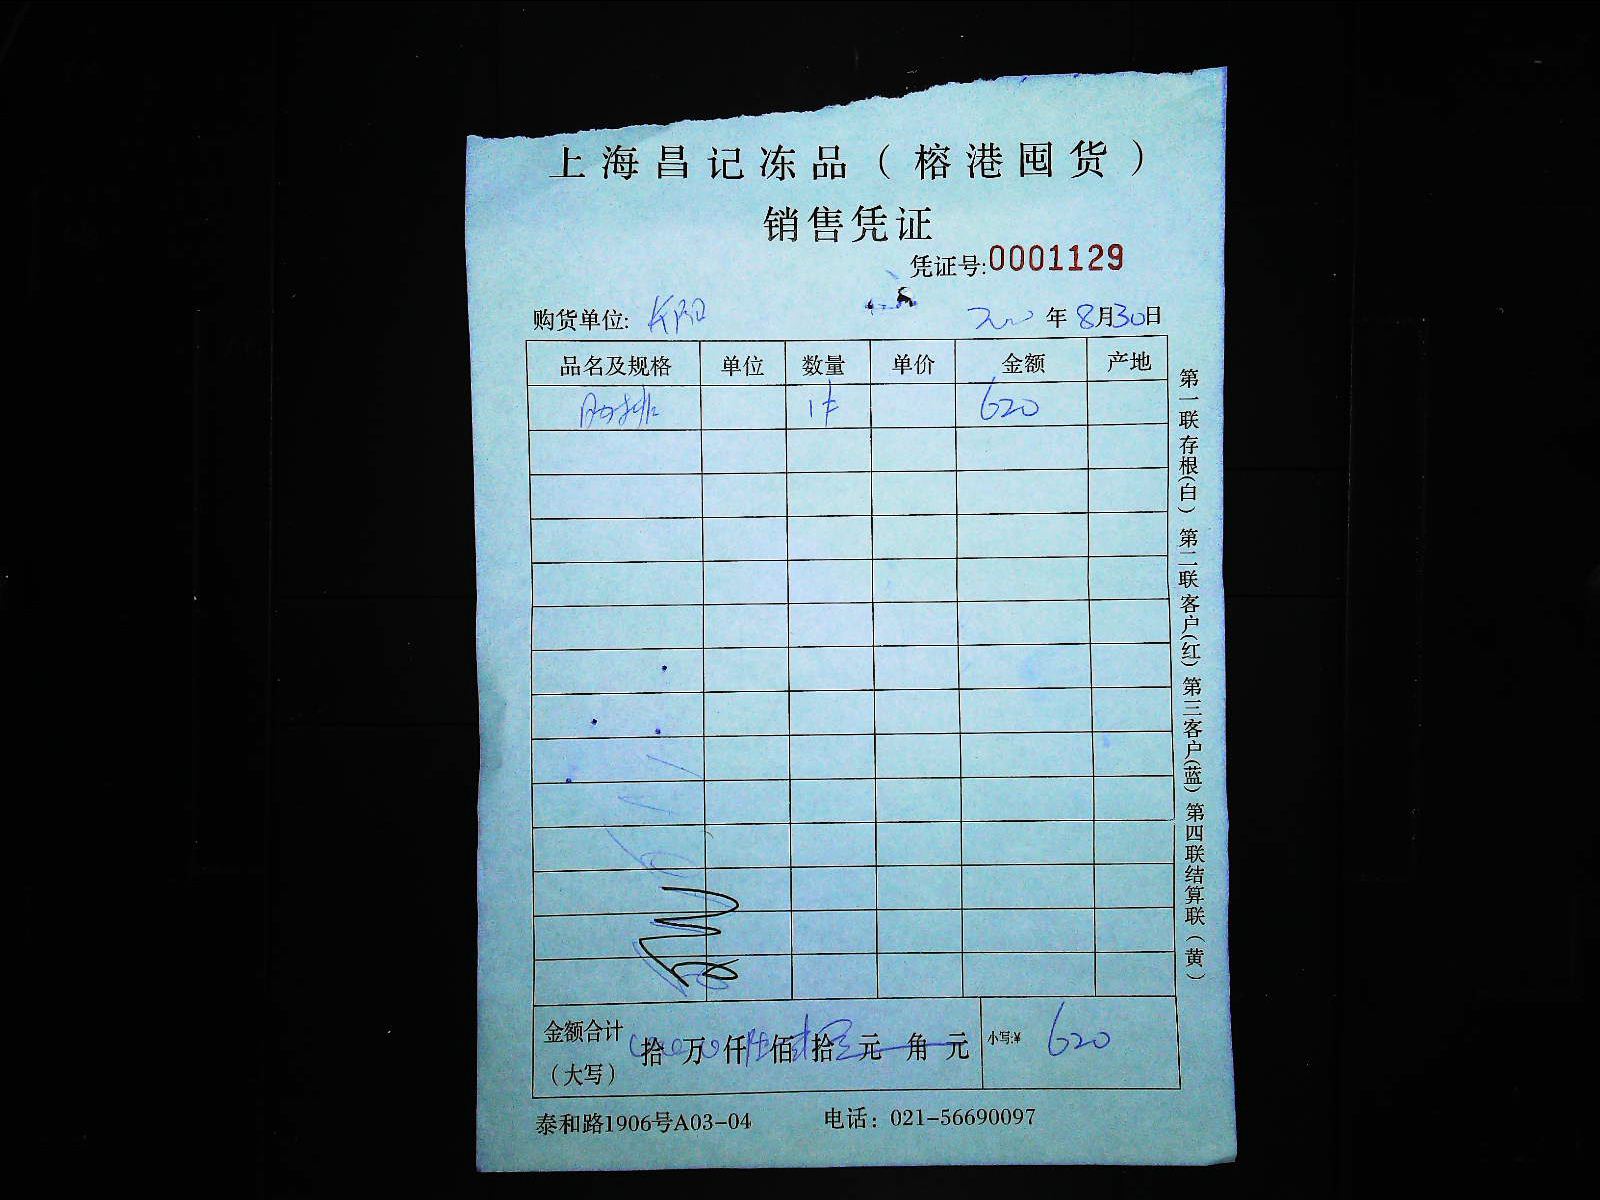 上海昌记冻品（榕港囤货）
销售凭证
凭证号:0001129
购货单位: 长阳 年8月30日
品名及规格 单位 数量 单价 金额 产地
1件 620
金额合计（大写） 拾 万 仟 陆佰 贰拾 元 角 元 小写:¥ 620
泰和路1906号A03-04 电话：021-56690097
第一联存根(白) 第二联客户(红) 第三客户(蓝) 第四联结算联(黄)